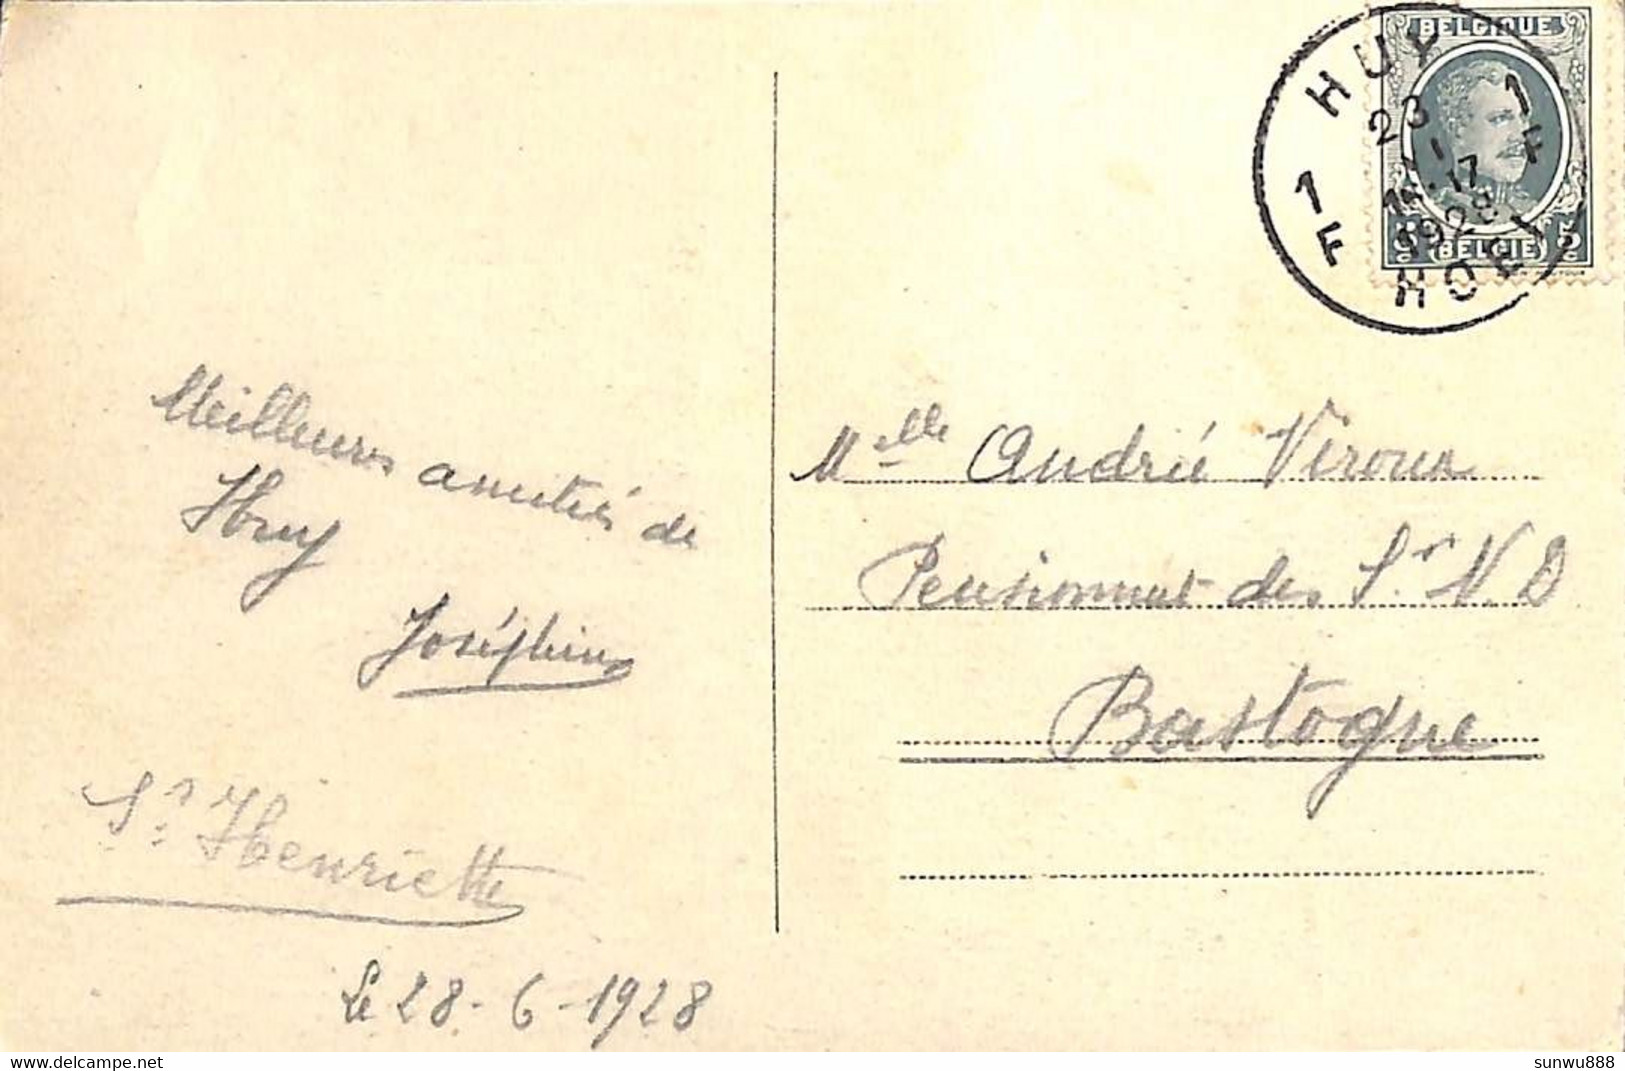 BELGIQUE
HUY
23
1 F
1 F
14-17
1928
HOEI
BELGIE
5
Meilleures amitiés de
Huy
Joséphine
Sr Henriette
Le 28-6-1928
Melle Andrée Viroux
Pensionnat des Srs N.D
Bastogne
sunwu888